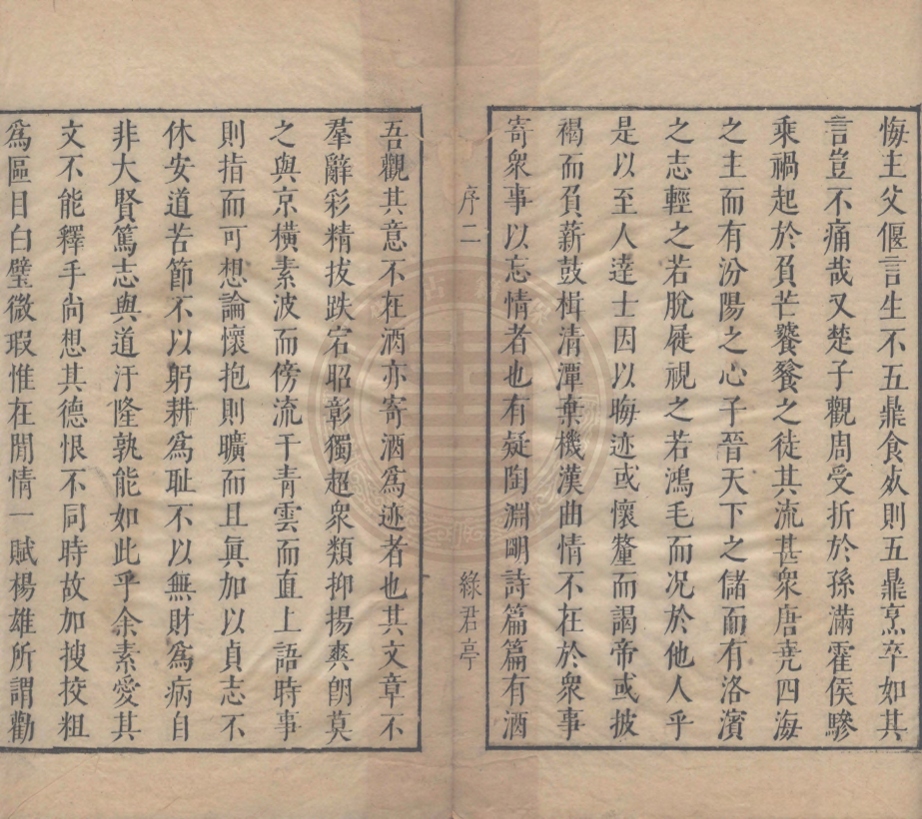 悔主父偃言生不五鼎食死則五鼎烹卒如其
言豈不痛哉又楚子觀周受折於孫滿霍侯驂
乘禍起於負芒饕餮之徒其流甚衆唐堯四海
之主而有汾陽之心子晉天下之儲而有洛濱
之志輕之若脫屣視之若鴻毛而况於他人乎
是以至人達士因以晦迹或懷釐而謁帝或披
褐而負薪鼓楫清潭棄機漢曲情不在於衆事
寄衆事以忘情者也有疑陶淵明詩篇篇有酒
序二
綠君亭
吾觀其意不在酒亦寄酒爲迹者也其文章不
羣辭彩精拔跌宕昭彰獨超衆類抑揚爽朗莫
之與京橫素波而傍流干青雲而直上語時事
則指而可想論懷抱則曠而且眞加以貞志不
休安道苦節不以躬耕爲耻不以無財爲病自
非大賢篤志與道汙隆孰能如此乎余素愛其
文不能釋手尚想其德恨不同時故加搜挍粗
爲區目白璧微瑕惟在閒情一賦楊雄所謂勸